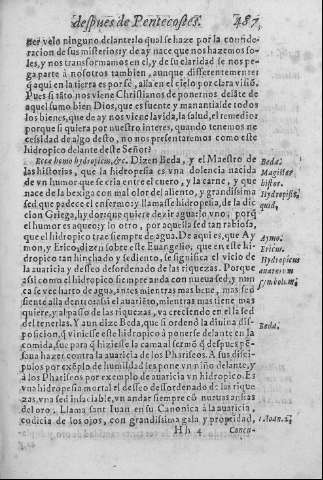 despues de Pentecostes. 487
ner velo ninguno delante: lo qual se haze por la consideracion
de sus misterios: y de ay nace que nos hazemos soles,
y nos transformamos en el, y de su claridad se nos pega
parte à nosotros tambien, aunque differentemente:
q̃ aqui en la tierra es por fè, allà en el cielo por clara visiõ.
Pues si tãto, nos viene Christianos de ponernos delãte de
aquel sumo bien Dios, que es fuente y manantial de todos
los bienes, que de ay nos viene la vida, la salud, el remedio:
porque si quiera por nuestro interes, quando tenemos necessidad
de algo desto, no nos presentaremos como este
hidropico delante deste Señor?
Ecce homo hydropicus, &c. Dizen Beda, y el Maestro de
las historias, que la hidropesia es vna dolencia nacida
de vn humor que se cria entre el cuero, y la carne, y que
nace de la bexiga con mal olor del aliento, y grandissima
sed que padece el enfermo: y llamasse hidropesia, de la diccion
Griega, hydor, que quiere dezir agua: lo vno, porq̃
el humor es aqueo: y lo otro, por aquella sed tan rabiosa,
que el hidropico trae siempre de agua. De aqui es, que Aymon,
y Erico, dizen sobre este Euangelio, que en este hidropico
tan hinchado y sediento, se significa el vicio de
la auaricia y desseo desordenado de las riquezas. Porque
assi como el hidropico siempre anda con nueua sed, y nunca
se ve farto de agua, antes mientras mas beue, mas sed
siente allà dentro: assi el auariẽto, mientras mas tiene mas
quiere, y al passo de las riquezas, va creciendo en el la sed
del tenerlas. Y aun dize Beda, que si ordenò la diuina disposicion,
q̃ viniesse este hidropico à ponerse delante en la
comida, fue para q̃ hiziesse la cama al sermõ q̃ despues pẽsaua
hazer contra la auaricia de los Phariseos. A sus discipulos
por exẽplo de humildad les pone vn niño delante, y
à los Phariseos por exemplo de auaricia vn hidropico. Es
vna hidropesia mortal el desseo dessordenado de las riquezas,
vna sed insaciable, vn andar siempre cõ nueuas ansias
del oro. Llama sant Iuan en su Canonica à la auaricia,
codicia de los ojos, con grandissima gala y propiedad,
Hh 4 Concu-
Beda.
Magister
histor.
Hydropisis,
quid.
Aymo.
Ericus.
Hydropicus
auarorum
symbolum.
Beda.
1. Ioan. 2.